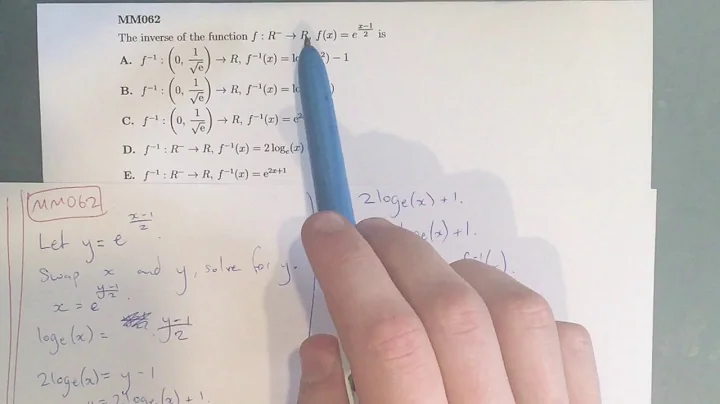 MM062
The inverse of the function f : R⁻ → R, f(x) = e^((x−1)/2) is
A. f⁻¹ : (0, 1/√e) → R, f⁻¹(x) = lo ²) − 1
B. f⁻¹ : (0, 1/√e) → R, f⁻¹(x) = lo )
C. f⁻¹ : (0, 1/√e) → R, f⁻¹(x) = e²
D. f⁻¹ : R⁻ → R, f⁻¹(x) = 2 logₑ(x)
E. f⁻¹ : R⁻ → R, f⁻¹(x) = e^(2x+1)
MM062
Let y = e^((x−1)/2).
Swap x and y, solve for y.
x = e^((y−1)/2).
logₑ(x) = (y−1)/2
2logₑ(x) = y − 1
y = 2logₑ(x) + 1.
2logₑ(x) + 1.
(x) + 1.
f⁻¹( ).